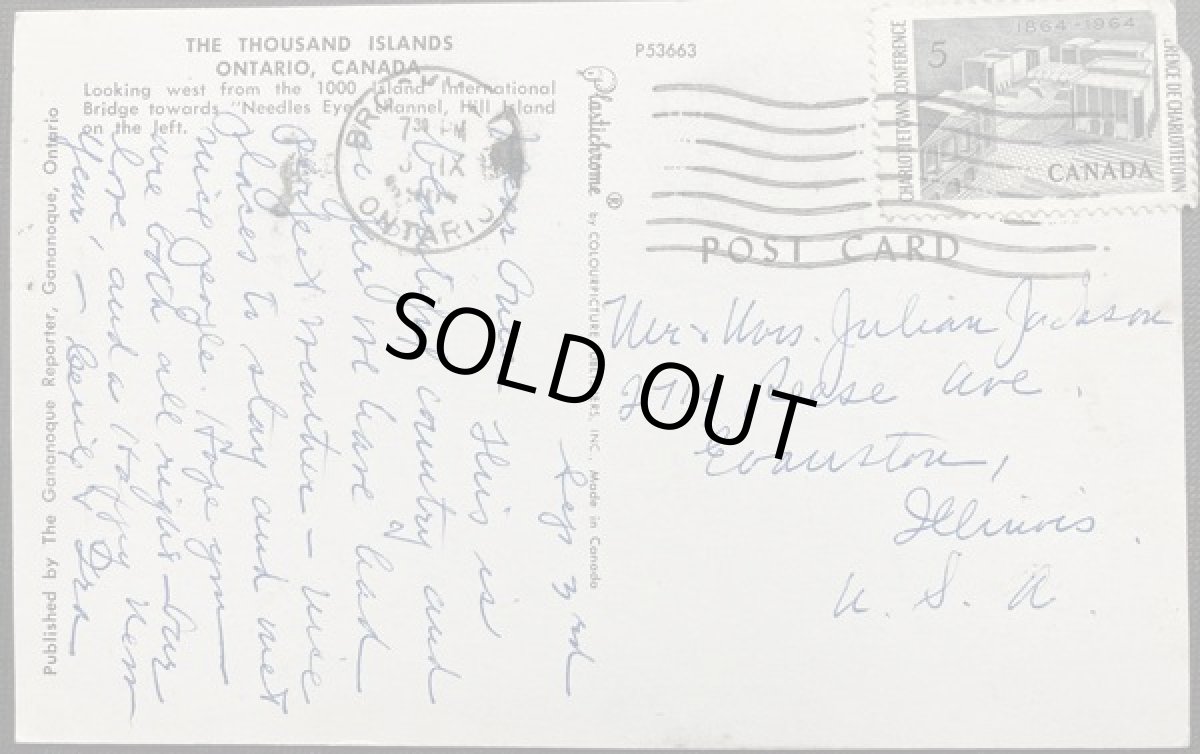 THE THOUSAND ISLANDS
ONTARIO, CANADA
Looking west from the 1000 Island International
Bridge towards "Needles Eye" Channel, Hill Island
on the left.
P53663
1864-1964
5
CHARLOTTETOWN CONFERENCE
CONFERENCE DE CHARLOTTETOWN
CANADA
7 30 PM
IX
ONTARIO
POST CARD
Plastichrome ® by COLOURPICTURE PUBLISHERS, INC. Made in Canada
Published by The Gananoque Reporter, Gananoque, Ontario
Sep 3 rd
Dear This is
beautiful country and
we have had
Perfect Weather - nice
places to stay and met
nice people. Hope you
are both all right - our
love, and a Happy New
Year, -
Mr & Mrs. Julian Jackson
Ave.
Evanston,
Illinois.
U. S. A.
SOLD OUT